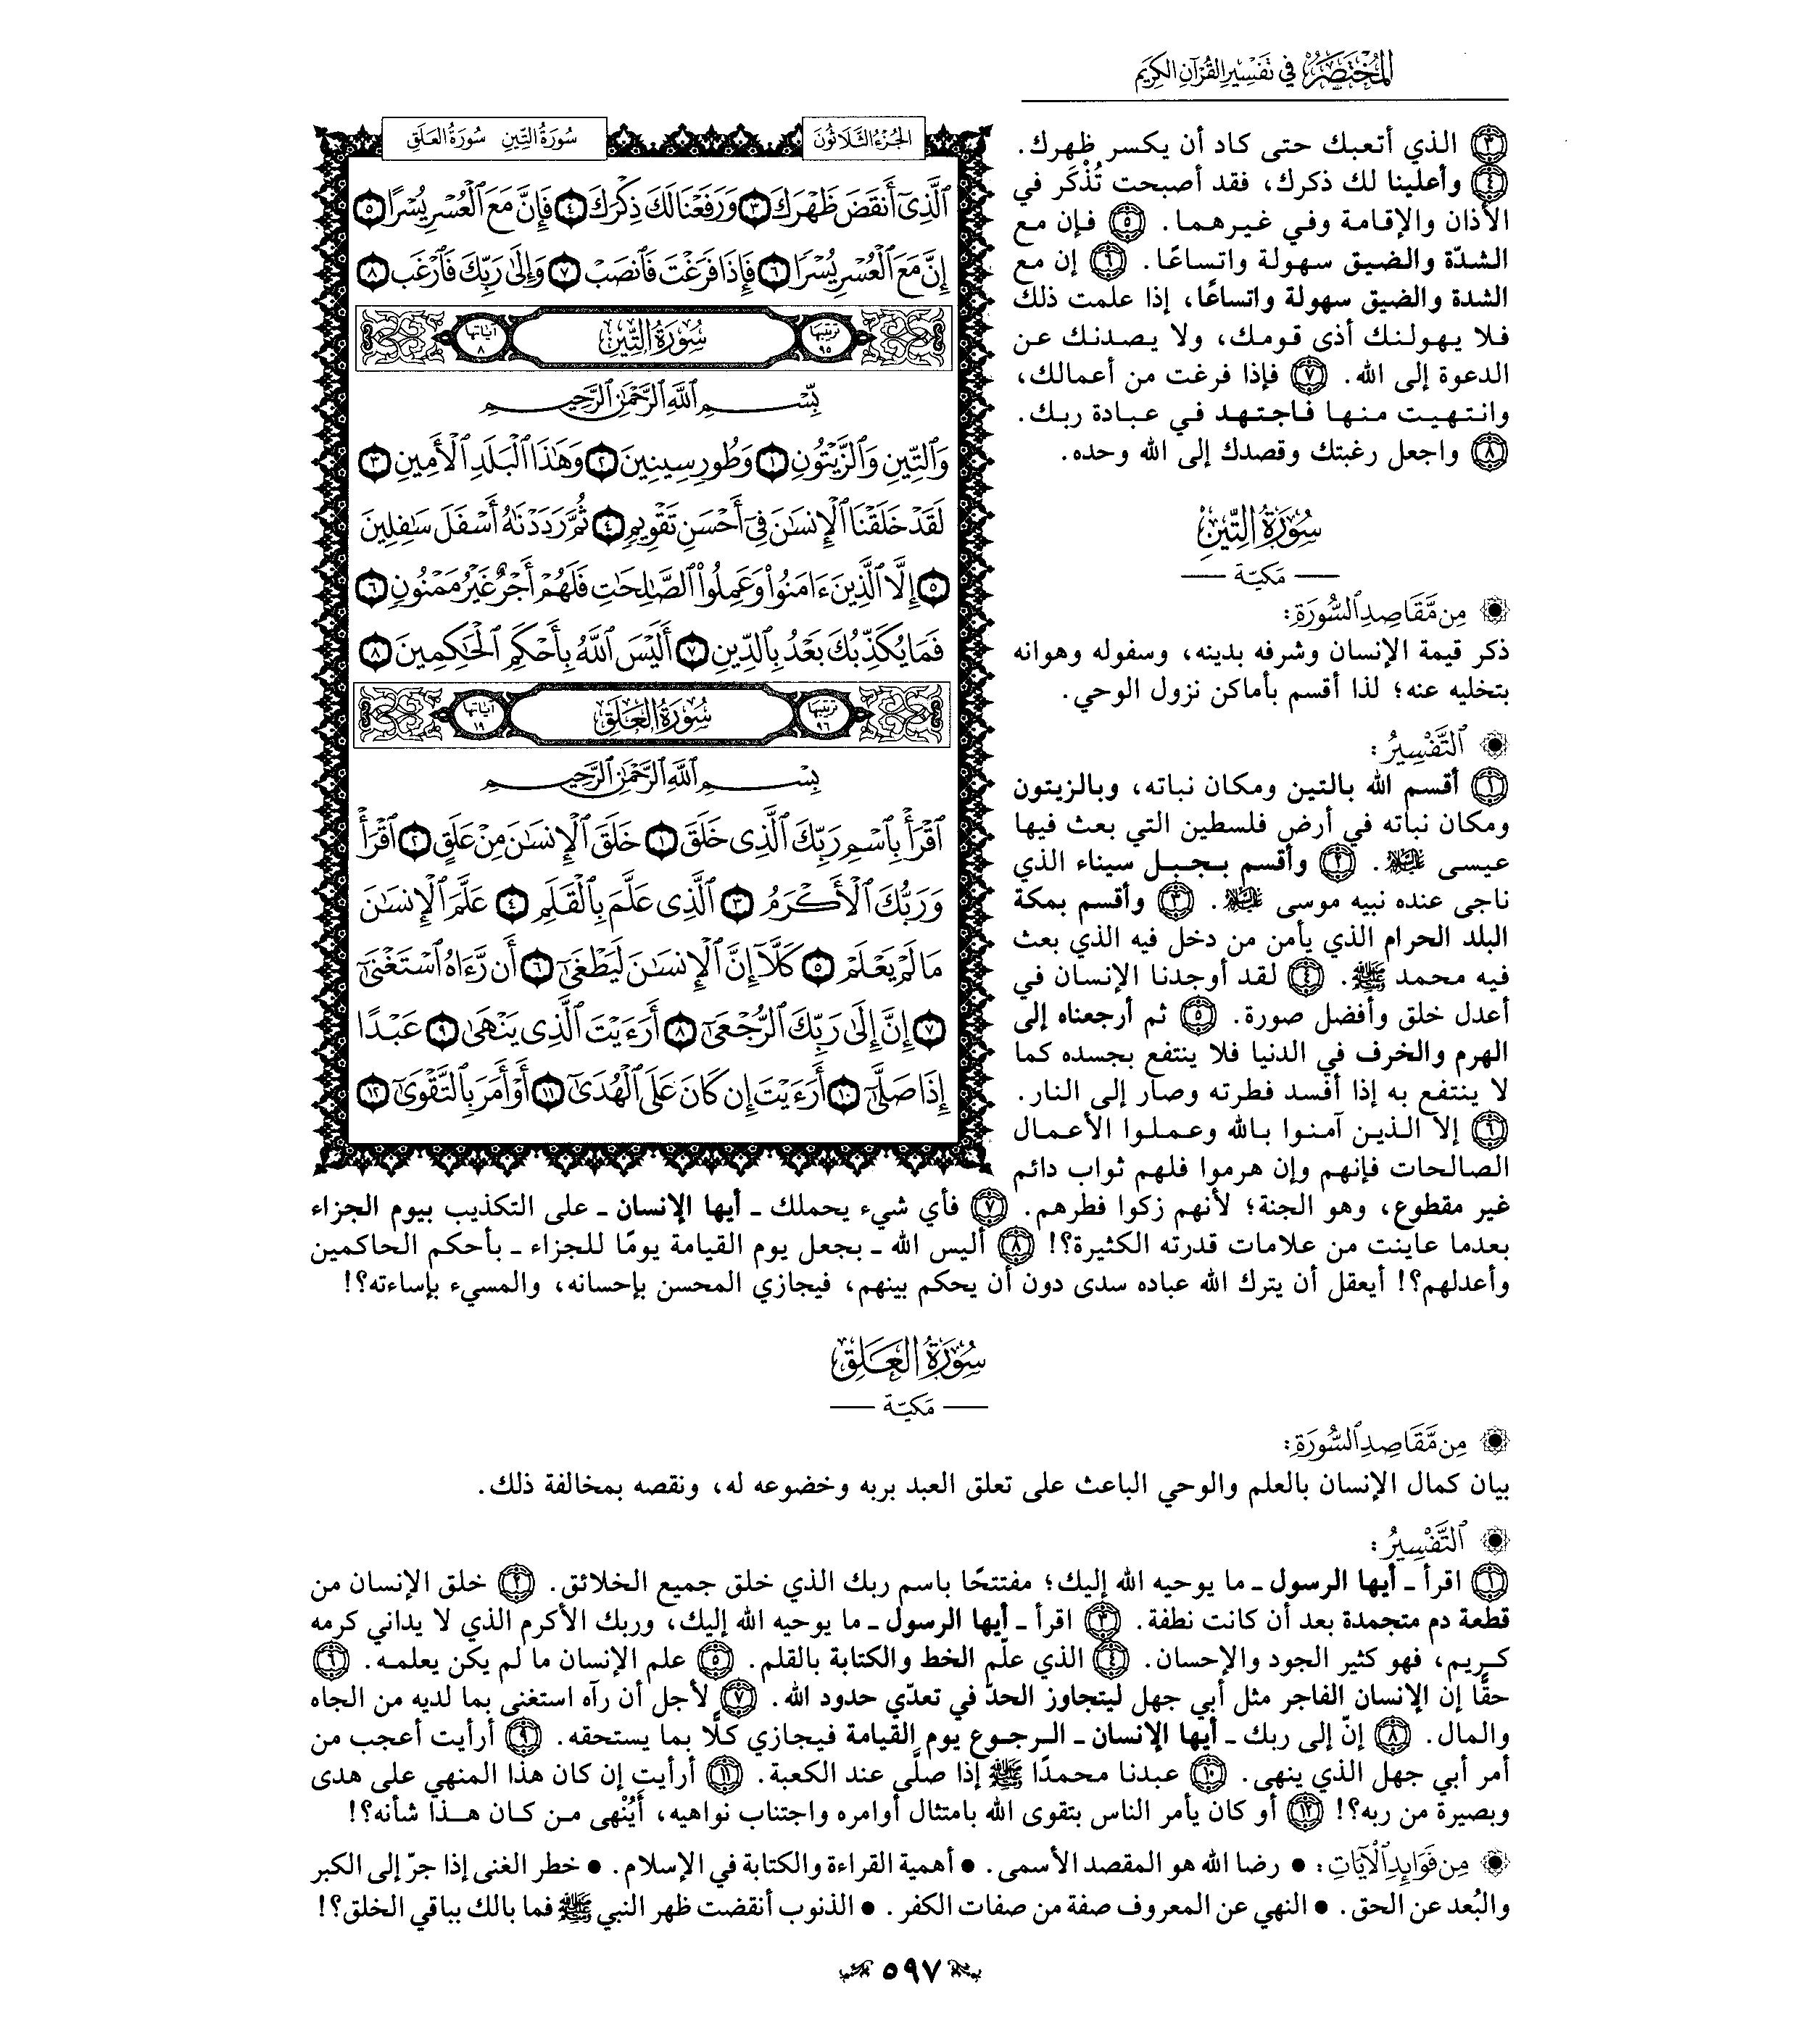 المُخْتَصَرُ في تَفْسِيرِ القُرْآنِ الكَرِيمِ
الجُزْءُ الثَّلَاثُونَ
سُورَةُ التِّينِ سُورَةُ العَلَقِ
ٱلَّذِيٓ أَنقَضَ ظَهْرَكَ ٣ وَرَفَعْنَا لَكَ ذِكْرَكَ ٤ فَإِنَّ مَعَ ٱلْعُسْرِ يُسْرًا ٥
إِنَّ مَعَ ٱلْعُسْرِ يُسْرًا ٦ فَإِذَا فَرَغْتَ فَٱنصَبْ ٧ وَإِلَىٰ رَبِّكَ فَٱرْغَب ٨
ترتيبها ٩٥ سُورَةُ التِّينِ آياتها ٨
بِسْمِ ٱللَّهِ ٱلرَّحْمَٰنِ ٱلرَّحِيمِ
وَٱلتِّينِ وَٱلزَّيْتُونِ ١ وَطُورِ سِينِينَ ٢ وَهَٰذَا ٱلْبَلَدِ ٱلْأَمِينِ ٣
لَقَدْ خَلَقْنَا ٱلْإِنسَٰنَ فِيٓ أَحْسَنِ تَقْوِيمٍ ٤ ثُمَّ رَدَدْنَٰهُ أَسْفَلَ سَٰفِلِينَ
٥ إِلَّا ٱلَّذِينَ ءَامَنُوا۟ وَعَمِلُوا۟ ٱلصَّٰلِحَٰتِ فَلَهُمْ أَجْرٌ غَيْرُ مَمْنُونٍ ٦
فَمَا يُكَذِّبُكَ بَعْدُ بِٱلدِّينِ ٧ أَلَيْسَ ٱللَّهُ بِأَحْكَمِ ٱلْحَٰكِمِينَ ٨
ترتيبها ٩٦ سُورَةُ العَلَقِ آياتها ١٩
بِسْمِ ٱللَّهِ ٱلرَّحْمَٰنِ ٱلرَّحِيمِ
ٱقْرَأْ بِٱسْمِ رَبِّكَ ٱلَّذِى خَلَقَ ١ خَلَقَ ٱلْإِنسَٰنَ مِنْ عَلَقٍ ٢ ٱقْرَأْ
وَرَبُّكَ ٱلْأَكْرَمُ ٣ ٱلَّذِى عَلَّمَ بِٱلْقَلَمِ ٤ عَلَّمَ ٱلْإِنسَٰنَ
مَا لَمْ يَعْلَمْ ٥ كَلَّآ إِنَّ ٱلْإِنسَٰنَ لَيَطْغَىٰٓ ٦ أَن رَّءَاهُ ٱسْتَغْنَىٰٓ
٧ إِنَّ إِلَىٰ رَبِّكَ ٱلرُّجْعَىٰٓ ٨ أَرَءَيْتَ ٱلَّذِى يَنْهَىٰ ٩ عَبْدًا
إِذَا صَلَّىٰٓ ١٠ أَرَءَيْتَ إِن كَانَ عَلَى ٱلْهُدَىٰٓ ١١ أَوْ أَمَرَ بِٱلتَّقْوَىٰٓ ١٢
٣ الذي أتعبك حتى كاد أن يكسر ظهرك.
٤ وأعلينا لك ذكرك، فقد أصبحت تُذْكَر في
الأذان والإقامة وفي غيرهما. ٥ فإن مع
الشدّة والضيق سهولة واتساعًا. ٦ إن مع
الشدة والضيق سهولة واتساعًا، إذا علمت ذلك
فلا يهولنك أذى قومك، ولا يصدنك عن
الدعوة إلى الله. ٧ فإذا فرغت من أعمالك،
وانتهيت منها فاجتهد في عبادة ربك.
٨ واجعل رغبتك وقصدك إلى الله وحده.
سُورَةُ التِّينِ
مَكيّة
مِن مَّقَاصِدِ ٱلسُّورَةِ:
ذكر قيمة الإنسان وشرفه بدينه، وسفوله وهوانه
بتخليه عنه؛ لذا أقسم بأماكن نزول الوحي.
ٱلتَّفْسِيرُ:
١ أقسم الله بالتين ومكان نباته، وبالزيتون
ومكان نباته في أرض فلسطين التي بعث فيها
عيسى عليه السلام. ٢ وأقسم بجبل سيناء الذي
ناجى عنده نبيه موسى عليه السلام. ٣ وأقسم بمكة
البلد الحرام الذي يأمن من دخل فيه الذي بعث
فيه محمد ﷺ. ٤ لقد أوجدنا الإنسان في
أعدل خلق وأفضل صورة. ٥ ثم أرجعناه إلى
الهرم والخرف في الدنيا فلا ينتفع بجسده كما
لا ينتفع به إذا أفسد فطرته وصار إلى النار.
٦ إلا الذين آمنوا بالله وعملوا الأعمال
الصالحات فإنهم وإن هرموا فلهم ثواب دائم
غير مقطوع، وهو الجنة؛ لأنهم زكوا فطرهم. ٧ فأي شيء يحملك ـ أيها الإنسان ـ على التكذيب بيوم الجزاء
بعدما عاينت من علامات قدرته الكثيرة؟! ٨ أليس الله ـ بجعل يوم القيامة يومًا للجزاء ـ بأحكم الحاكمين
وأعدلهم؟! أيعقل أن يترك الله عباده سدى دون أن يحكم بينهم، فيجازي المحسن بإحسانه، والمسيء بإساءته؟!
سُورَةُ العَلَقِ
مَكيّة
مِن مَّقَاصِدِ ٱلسُّورَةِ:
بيان كمال الإنسان بالعلم والوحي الباعث على تعلق العبد بربه وخضوعه له، ونقصه بمخالفة ذلك.
ٱلتَّفْسِيرُ:
١ اقرأ ـ أيها الرسول ـ ما يوحيه الله إليك؛ مفتتحًا باسم ربك الذي خلق جميع الخلائق. ٢ خلق الإنسان من
قطعة دم متجمدة بعد أن كانت نطفة. ٣ اقرأ ـ أيها الرسول ـ ما يوحيه الله إليك، وربك الأكرم الذي لا يداني كرمه
كريم، فهو كثير الجود والإحسان. ٤ الذي علّم الخط والكتابة بالقلم. ٥ علم الإنسان ما لم يكن يعلمه. ٦
حقًّا إن الإنسان الفاجر مثل أبي جهل ليتجاوز الحدّ في تعدّي حدود الله. ٧ لأجل أن رآه استغنى بما لديه من الجاه
والمال. ٨ إنّ إلى ربك ـ أيها الإنسان ـ الرجوع يوم القيامة فيجازي كلًّا بما يستحقه. ٩ أرأيت أعجب من
أمر أبي جهل الذي ينهى. ١٠ عبدنا محمدًا ﷺ إذا صلَّى عند الكعبة. ١١ أرأيت إن كان هذا المنهي على هدى
وبصيرة من ربه؟! ١٢ أو كان يأمر الناس بتقوى الله بامتثال أوامره واجتناب نواهيه، أَيُنْهى من كان هذا شأنه؟!
مِن فَوَائِدِ ٱلْآيَاتِ: • رضا الله هو المقصد الأسمى. • أهمية القراءة والكتابة في الإسلام. • خطر الغنى إذا جرّ إلى الكبر
والبُعد عن الحق. • النهي عن المعروف صفة من صفات الكفر. • الذنوب أنقضت ظهر النبي ﷺ فما بالك بباقي الخلق؟!
٥٩٧